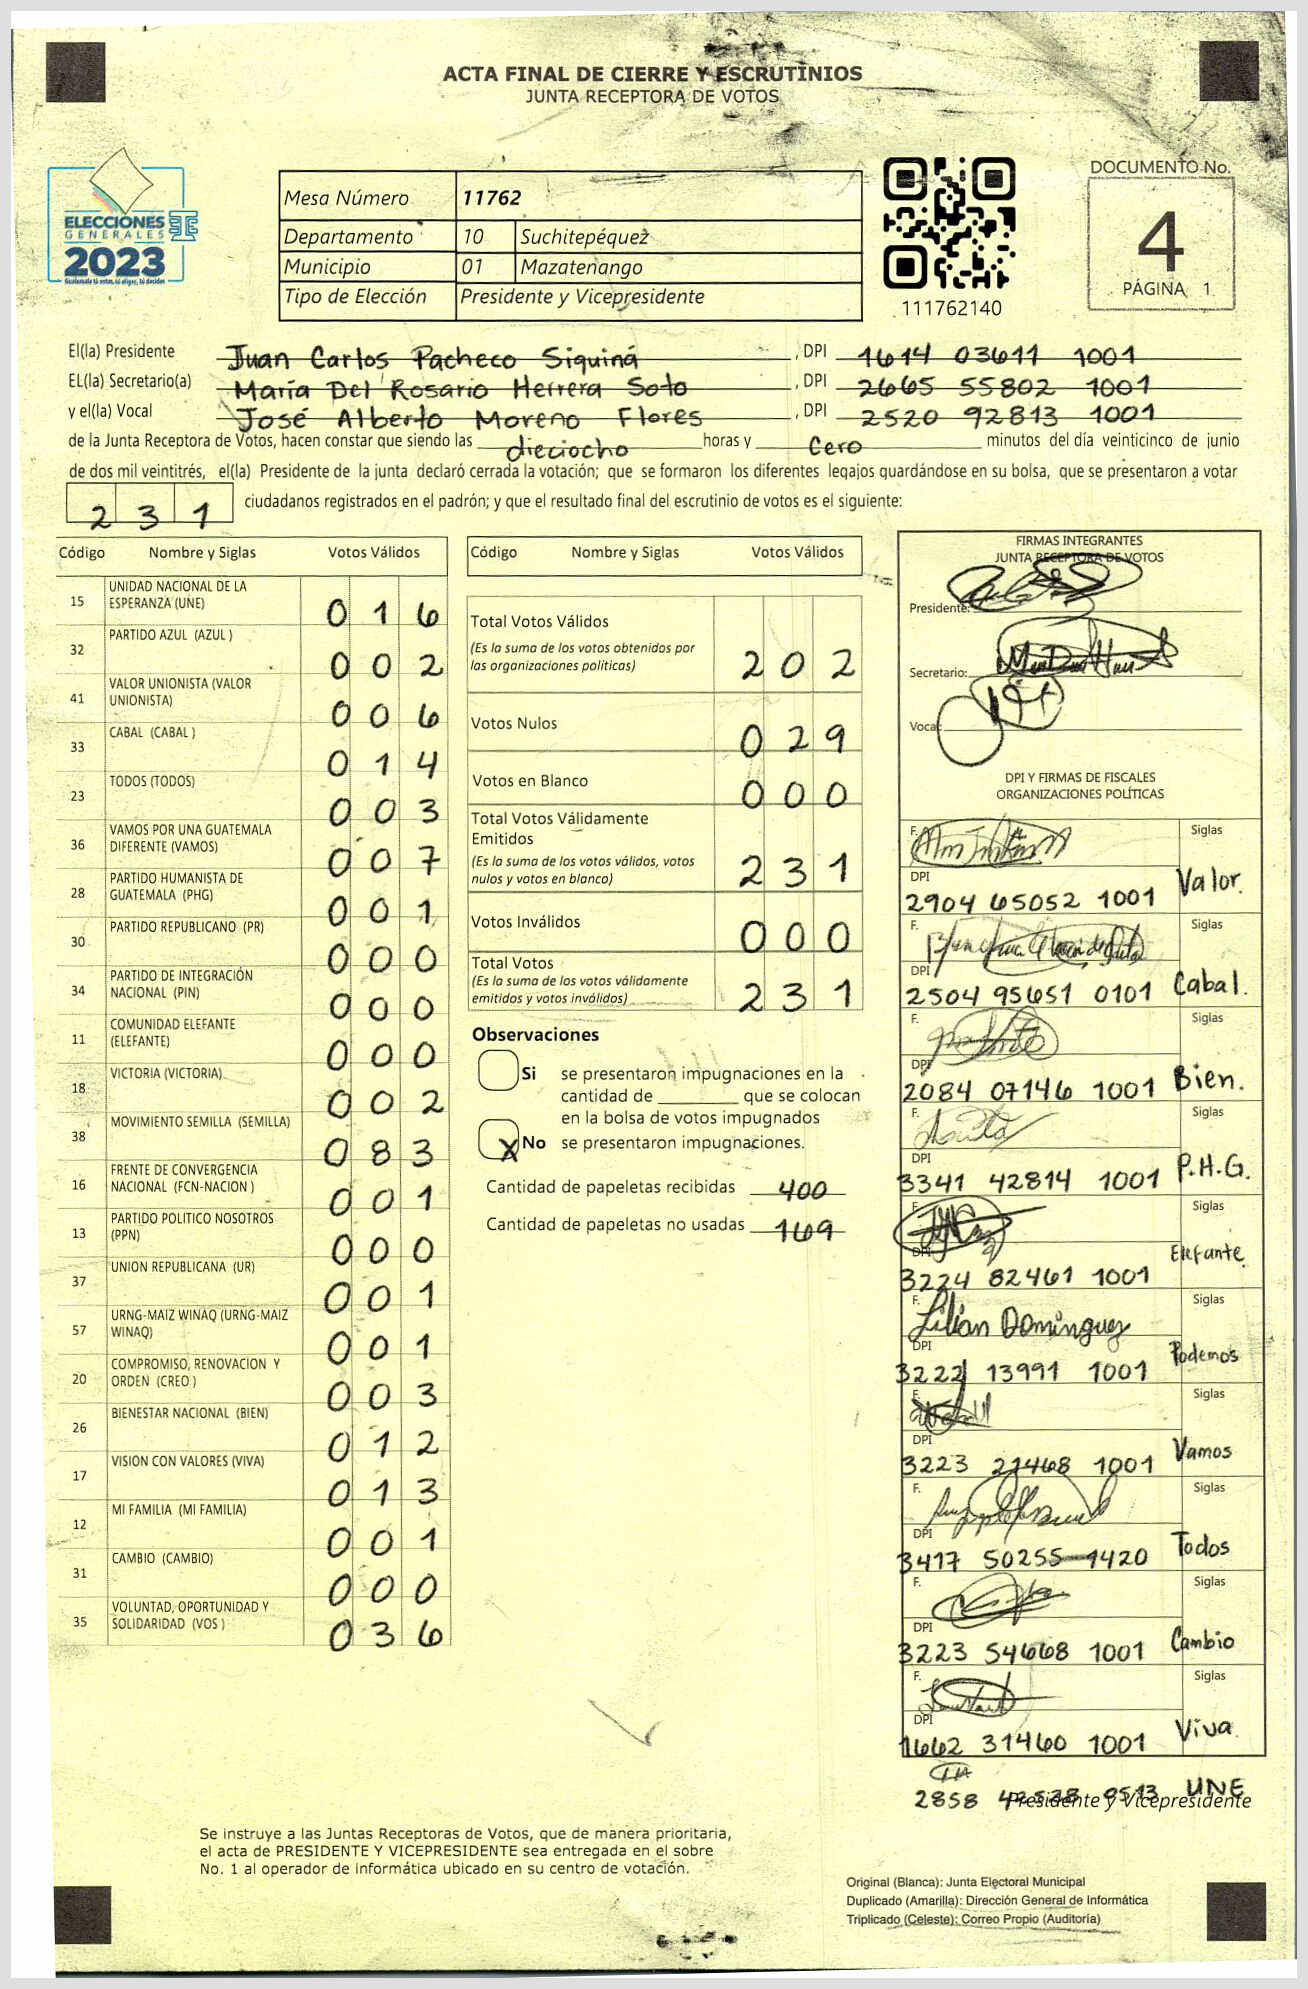 ACTA FINAL DE CIERRE Y ESCRUTINIOS
JUNTA RECEPTORA DE VOTOS
ELECCIONES
GENERALES
2023
Guatemala tú votas, tú eliges, tú decides
Mesa Número 11762
Departamento 10 Suchitepéquez
Municipio 01 Mazatenango
Tipo de Elección Presidente y Vicepresidente
111762140
DOCUMENTO No.
4
PÁGINA 1
El(la) Presidente Juan Carlos Pacheco Siquiná , DPI 1614 03611 1001
EL(la) Secretario(a) María Del Rosario Herrera Soto , DPI 2665 55802 1001
y el(la) Vocal José Alberto Moreno Flores , DPI 2520 92813 1001
de la Junta Receptora de Votos, hacen constar que siendo las dieciocho horas y Cero minutos del día veinticinco de junio
de dos mil veintitrés, el(la) Presidente de la junta declaró cerrada la votación; que se formaron los diferentes legajos guardándose en su bolsa, que se presentaron a votar
231 ciudadanos registrados en el padrón; y que el resultado final del escrutinio de votos es el siguiente:
Código Nombre y Siglas Votos Válidos
15 UNIDAD NACIONAL DE LA ESPERANZA (UNE) 016
32 PARTIDO AZUL (AZUL ) 002
41 VALOR UNIONISTA (VALOR UNIONISTA) 006
33 CABAL (CABAL ) 014
23 TODOS (TODOS) 003
36 VAMOS POR UNA GUATEMALA DIFERENTE (VAMOS) 007
28 PARTIDO HUMANISTA DE GUATEMALA (PHG) 001
30 PARTIDO REPUBLICANO (PR) 000
34 PARTIDO DE INTEGRACIÓN NACIONAL (PIN) 000
11 COMUNIDAD ELEFANTE (ELEFANTE) 000
18 VICTORIA (VICTORIA) 002
38 MOVIMIENTO SEMILLA (SEMILLA) 083
16 FRENTE DE CONVERGENCIA NACIONAL (FCN-NACION ) 001
13 PARTIDO POLITICO NOSOTROS (PPN) 000
37 UNION REPUBLICANA (UR) 001
57 URNG-MAIZ WINAQ (URNG-MAIZ WINAQ) 001
20 COMPROMISO, RENOVACION Y ORDEN (CREO ) 003
26 BIENESTAR NACIONAL (BIEN) 012
17 VISION CON VALORES (VIVA) 013
12 MI FAMILIA (MI FAMILIA) 001
31 CAMBIO (CAMBIO) 000
35 VOLUNTAD, OPORTUNIDAD Y SOLIDARIDAD (VOS ) 036
Código Nombre y Siglas Votos Válidos
Total Votos Válidos 202
(Es la suma de los votos obtenidos por
las organizaciones políticas)
Votos Nulos 029
Votos en Blanco 000
Total Votos Válidamente
Emitidos 231
(Es la suma de los votos válidos, votos
nulos y votos en blanco)
Votos Inválidos 000
Total Votos 231
(Es la suma de los votos válidamente
emitidos y votos inválidos)
Observaciones
Si se presentaron impugnaciones en la
cantidad de ________ que se colocan
en la bolsa de votos impugnados
X No se presentaron impugnaciones.
Cantidad de papeletas recibidas 400
Cantidad de papeletas no usadas 169
FIRMAS INTEGRANTES
JUNTA RECEPTORA DE VOTOS
Presidente:
Secretario:
Vocal:
DPI Y FIRMAS DE FISCALES
ORGANIZACIONES POLÍTICAS
F. Siglas
DPI
2904 65052 1001 Valor.
F. Siglas
DPI
2504 95651 0101 Cabal.
F. Siglas
DPI
2084 07146 1001 Bien.
F. Siglas
DPI
3341 42814 1001 P.H.G.
F. Siglas
DPI
3224 82461 1001 Elefante.
F. Lilian Domínguez Siglas
DPI
3222 13991 1001 Podemos
F. Siglas
DPI
3223 21468 1001 Vamos
F. Siglas
DPI
3417 50255 1420 Todos
F. Siglas
DPI
3223 54668 1001 Cambio
F. Siglas
DPI
1662 31460 1001 Viva
2858 42538 0513 UNE
Presidente y Vicepresidente
Se instruye a las Juntas Receptoras de Votos, que de manera prioritaria,
el acta de PRESIDENTE Y VICEPRESIDENTE sea entregada en el sobre
No. 1 al operador de informática ubicado en su centro de votación.
Original (Blanca): Junta Electoral Municipal
Duplicado (Amarilla): Dirección General de Informática
Triplicado (Celeste): Correo Propio (Auditoría)